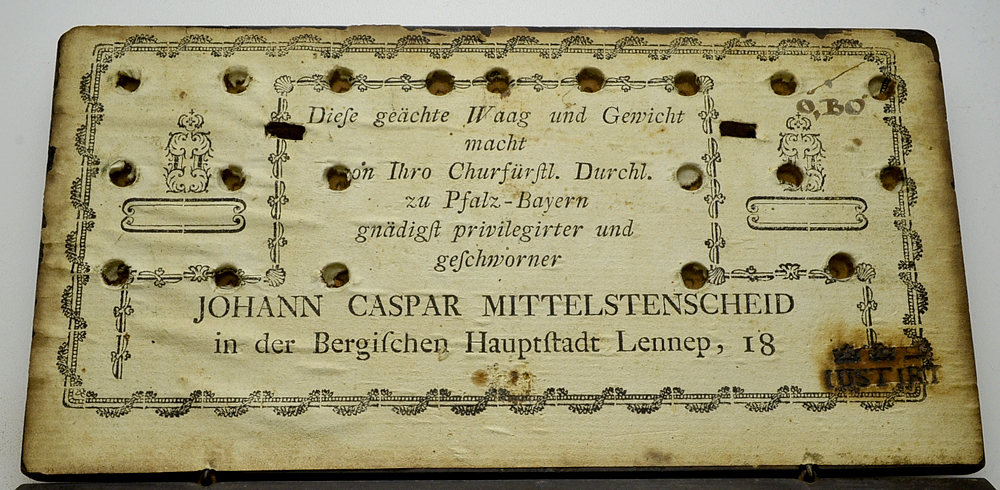 O,BO
Dieſe geächte Waag und Gewicht
macht
on Ihro Churfürſtl. Durchl.
zu Pfalz-Bayern
gnädigſt privilegirter und
geſchworner
JOHANN CASPAR MITTELSTENSCHEID
in der Bergiſchen Hauptſtadt Lennep, 18
IUSTIRT